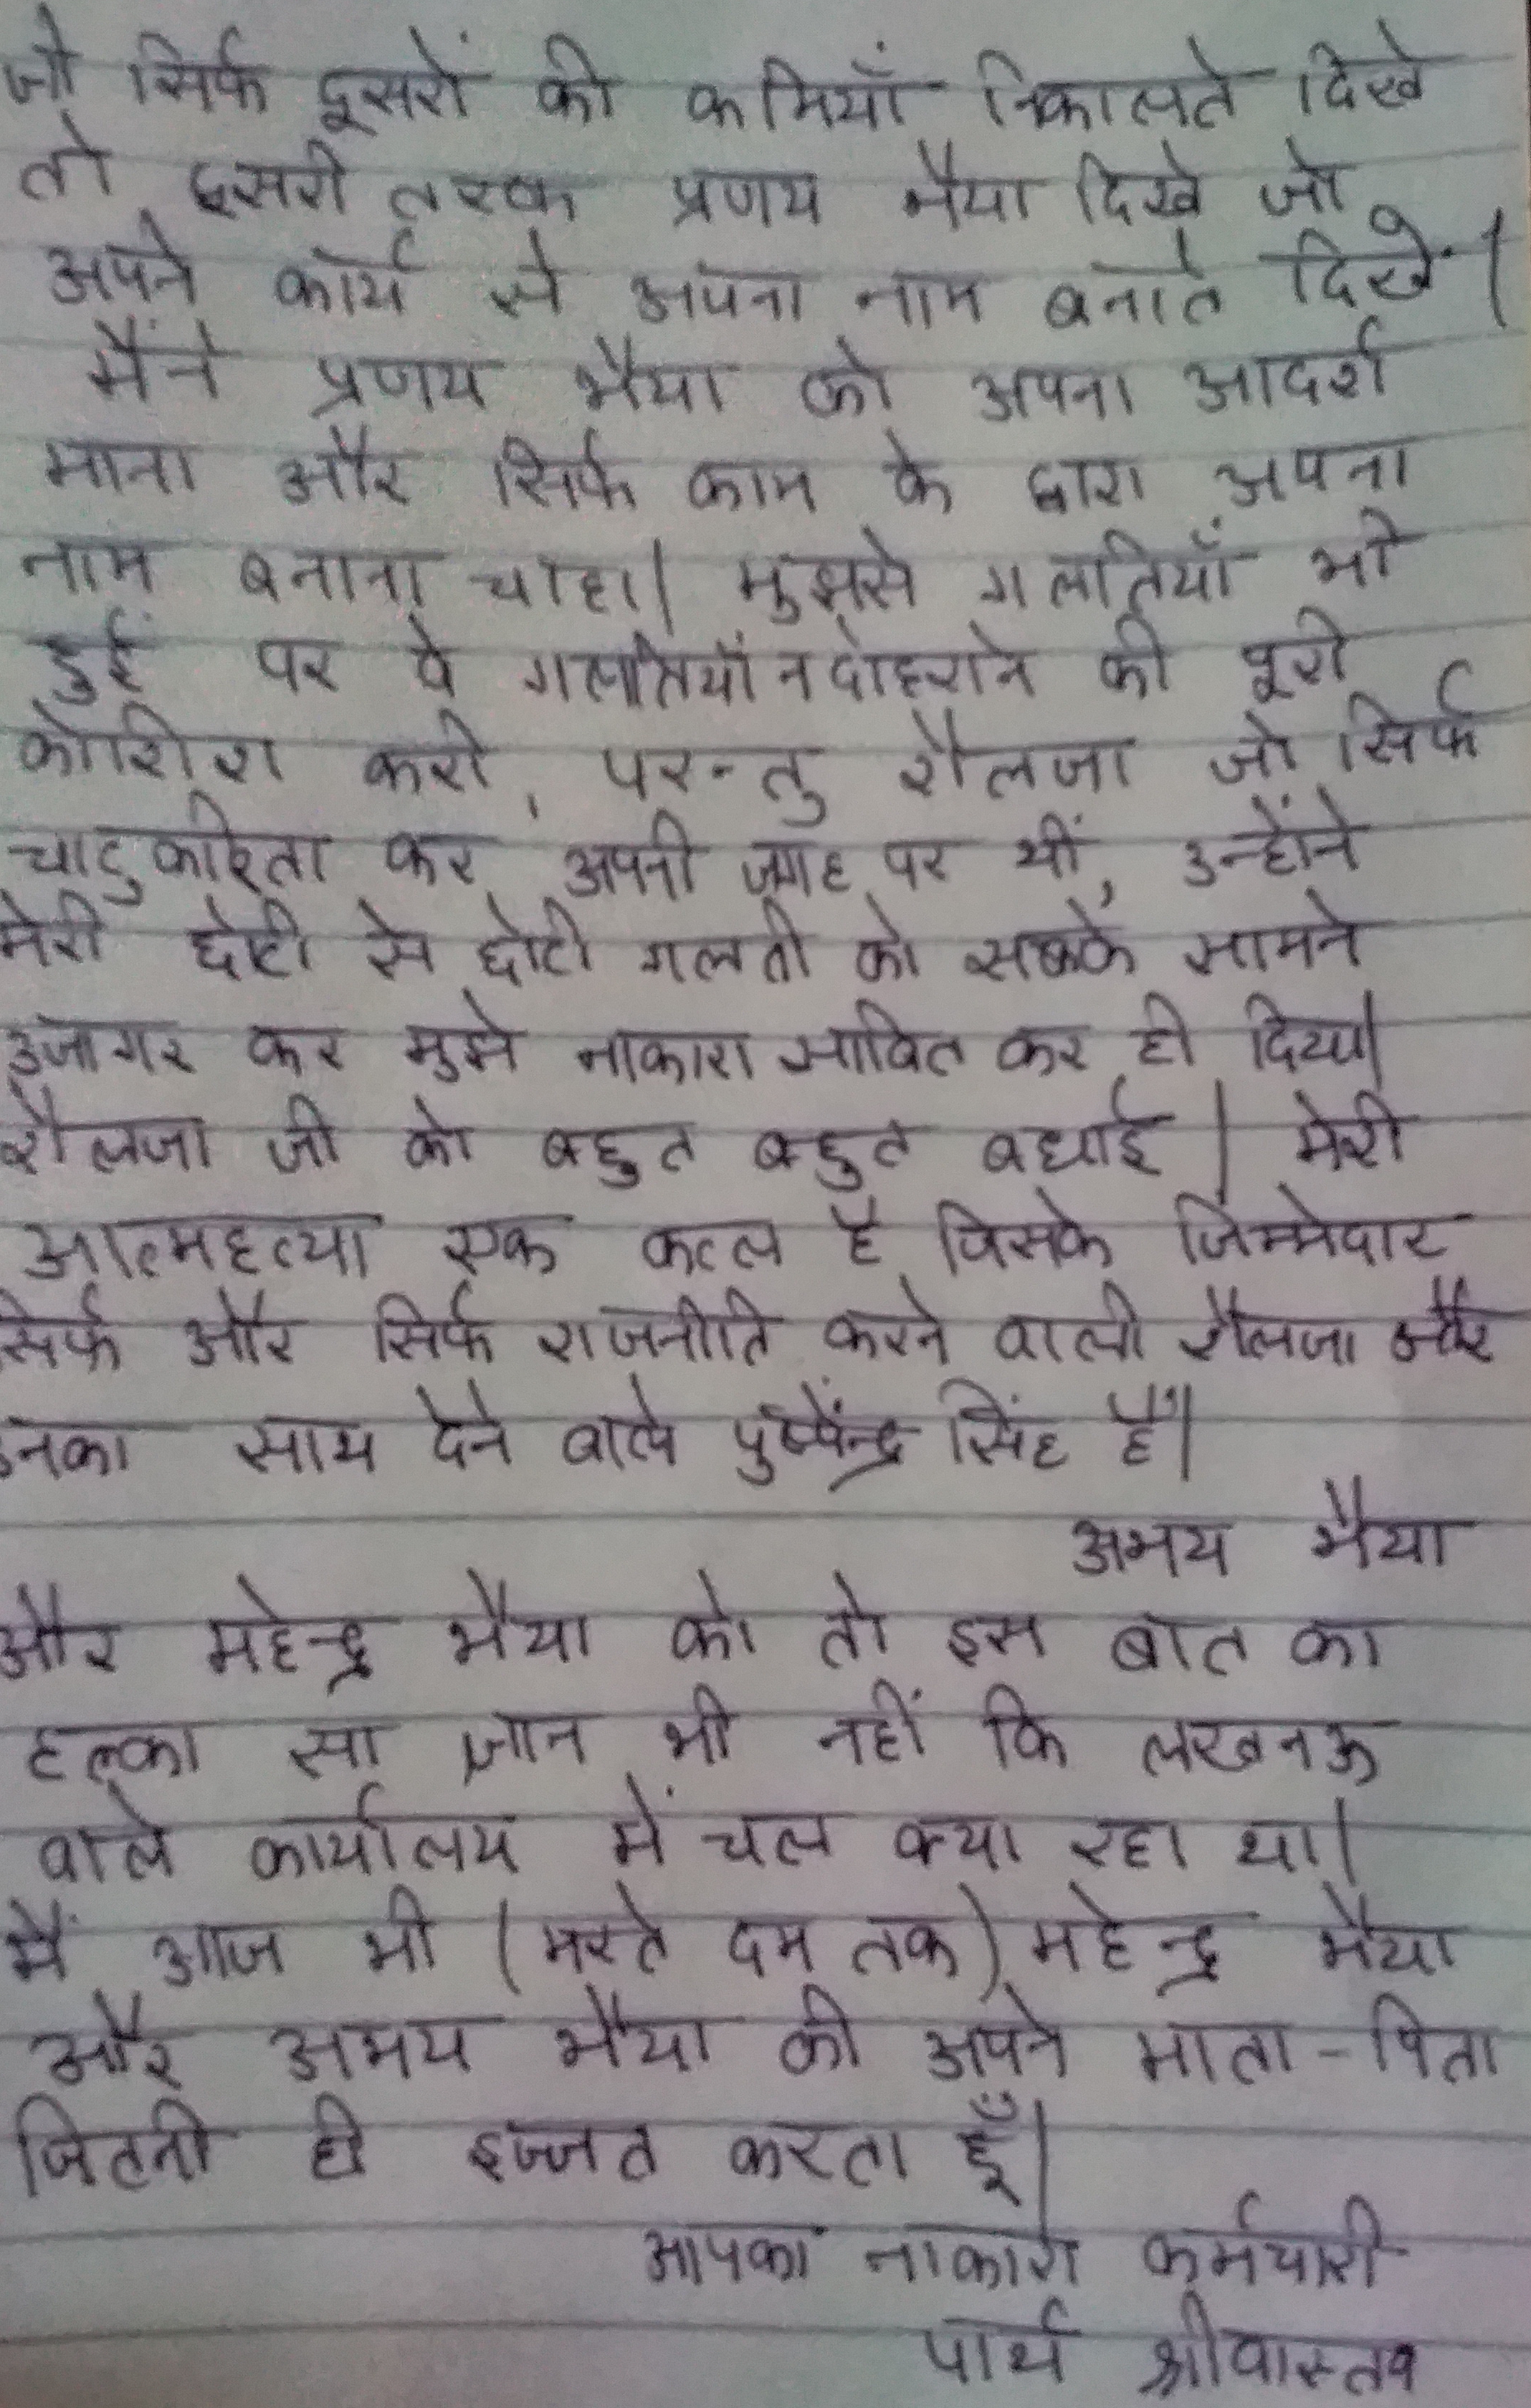 जो सिर्फ दूसरों की कमियाँ निकालते दिखे
तो दूसरी तरफ प्रणय भैया दिखे जो
अपने कार्य से अपना नाम बनाते दिखें।
मैंने प्रणय भैया को अपना आदर्श
माना और सिर्फ काम के द्वारा अपना
नाम बनाना चाहा। मुझसे गलतियाँ भी
हुईं पर वे गलतियाँ न दोहराने की पूरी
कोशिश करी, परन्तु शैलजा जो सिर्फ
चाटुकारिता कर अपनी जगह पर थीं, उन्होंने
मेरी छोटी से छोटी गलती को सबके सामने
उजागर कर मुझे नाकारा साबित कर ही दिया।
शैलजा जी को बहुत बहुत बधाई। मेरी
आत्महत्या एक कत्ल है जिसके जिम्मेदार
सिर्फ और सिर्फ राजनीति करने वाली शैलजा और
उनका साथ देने वाले पुष्पेंन्द्र सिंह हैं।
अभय भैया
और महेन्द्र भैया को तो इस बात का
हल्का सा ज्ञान भी नहीं कि लखनऊ
वाले कार्यालय में चल क्या रहा था।
मैं आज भी (मरते दम तक) महेन्द्र भैया
और अभय भैया की अपने माता-पिता
जितनी ही इज्जत करता हूँ।
आपका नाकारा कर्मचारी
पार्थ श्रीवास्तव